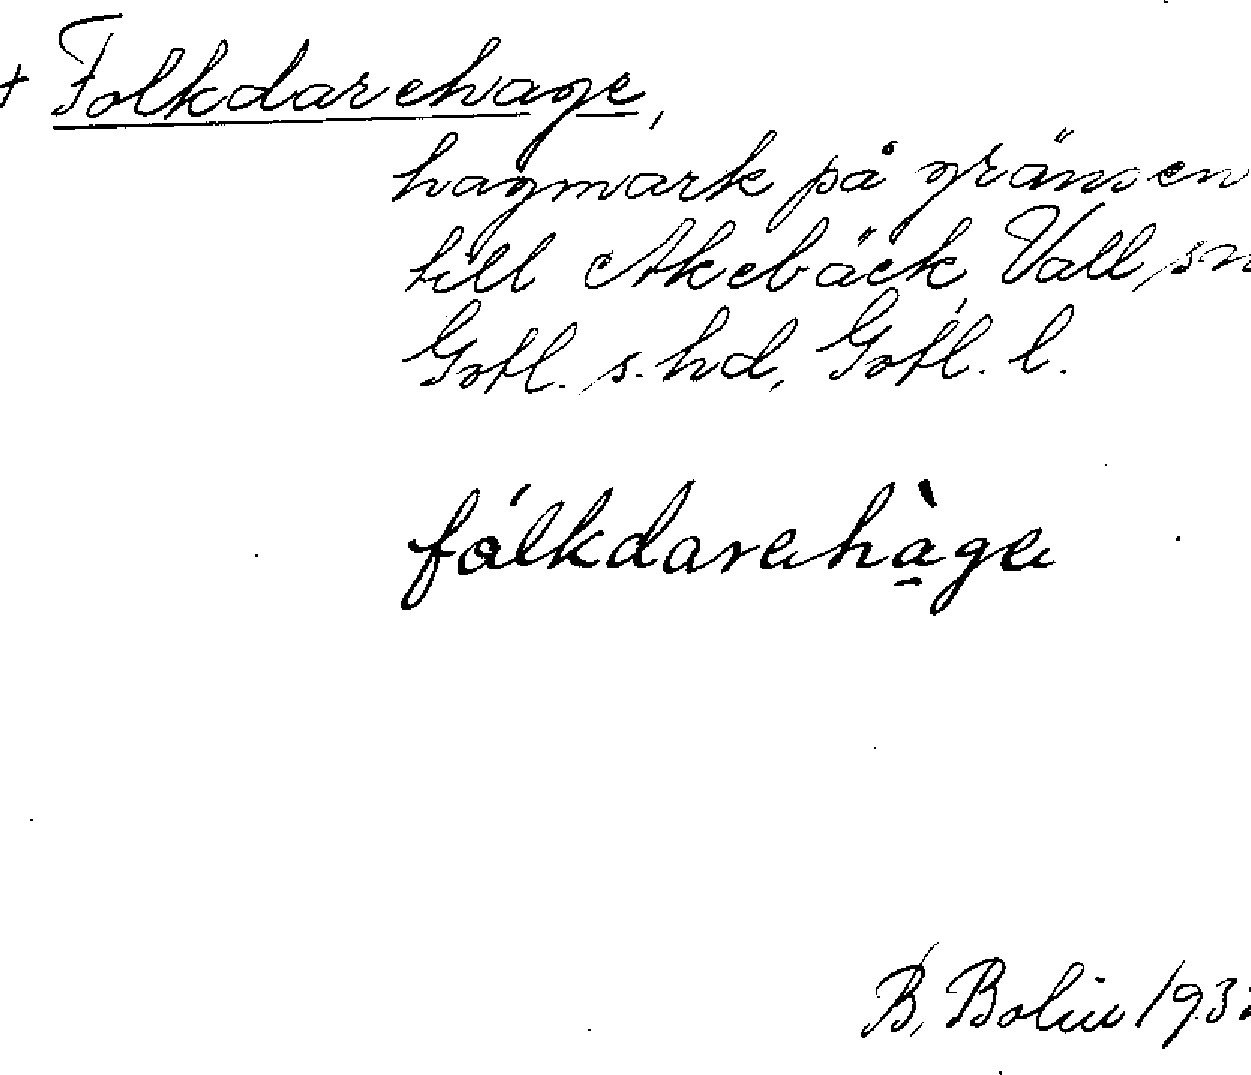 + Folkdarehage,
hagmark på gränsen
till Akebäck, Vall sn
Gotl. s. hd, Gotl. l.
fólkdarahàga
B. Bolin